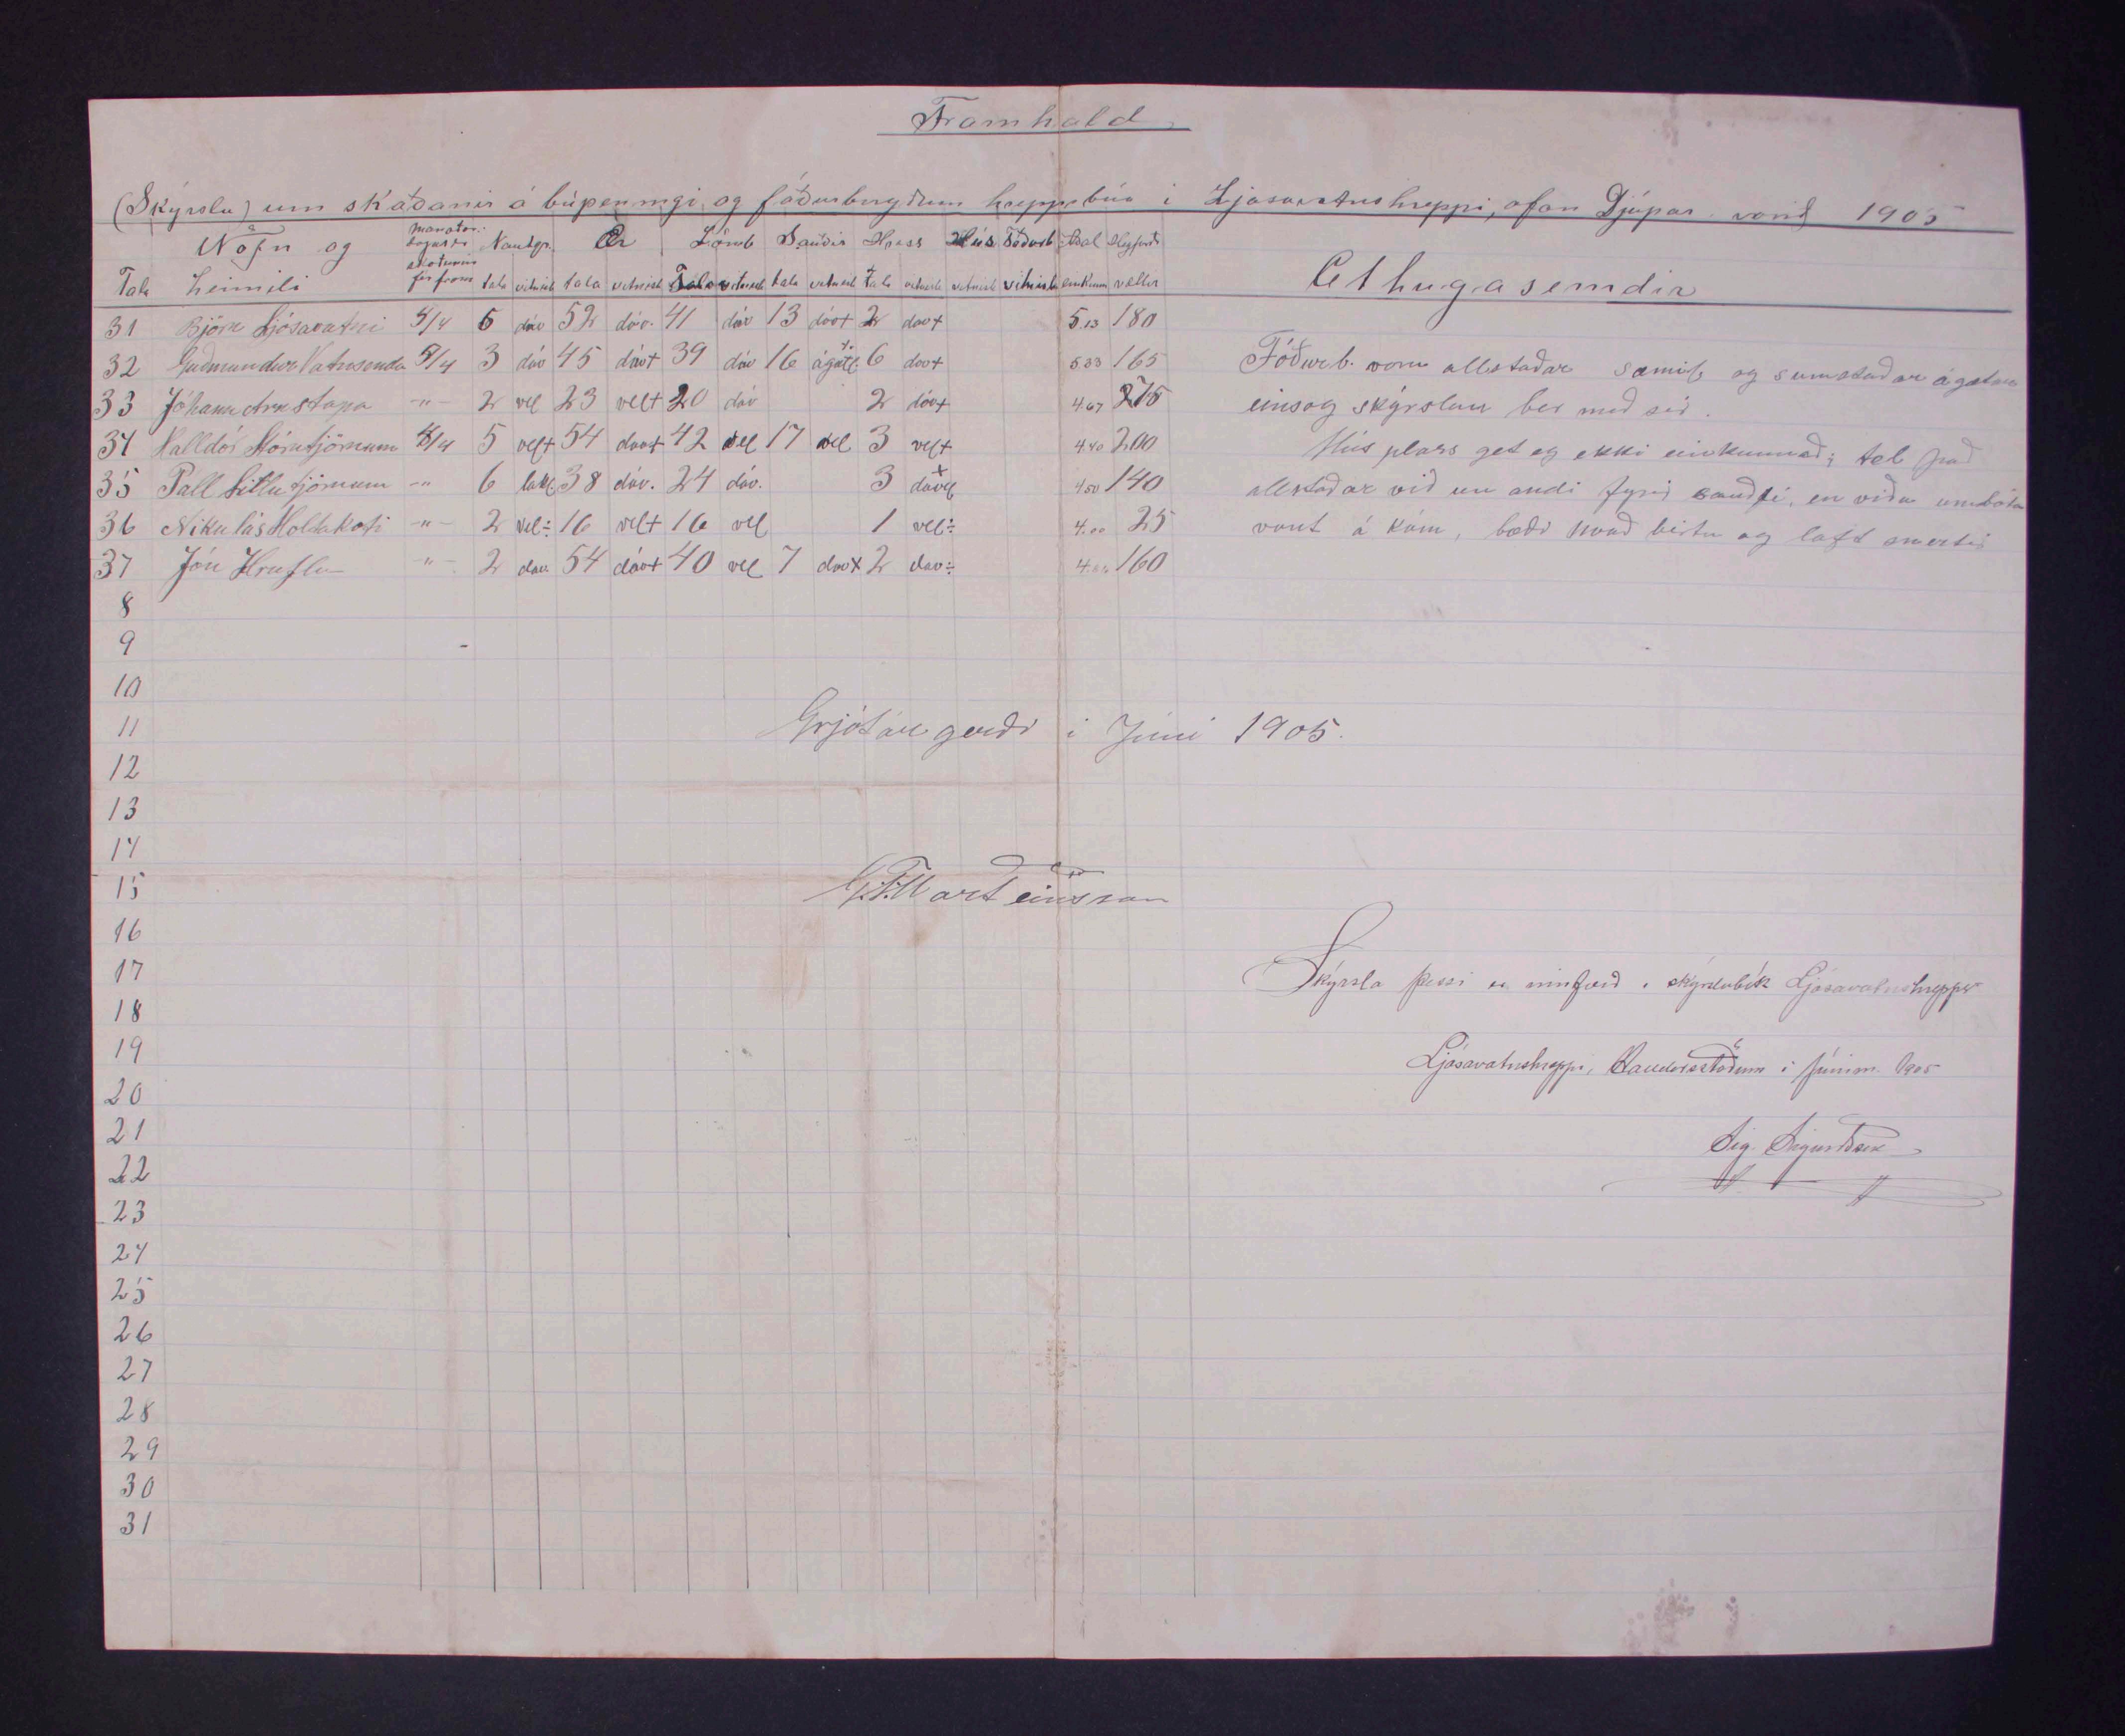 Framhald
(Skýrslu) um skoðanir á búpeningi og fóðurbirgðum hreppsbúa í Ljósavatnshreppi, ofan Djúpár vorið 1905
Nöfn og Nautgr. Ær Lömb Sauðir Hross Hús Fóðurb Aðal
Tala heimili fór fram tala vitnisb tala vitnisb Tala vitnisb tala vitnisb tala vitnisb vitnisb vitnisb einkunn vættir
31 Björn Ljósavatni 5/4 5 dáv 52 dáv. 41 dáv 13 dáv+ 2 dav+ 5.13 180
32 Guðmundur Vatnsenda 5/4 3 dáv 45 dáv+ 39 dáv 16 ágætl. 6 dav+ 5.33 165
33 Jóhann Arnstapa -"- 2 vel 23 vel+ 20 dáv 2 dáv+ 4.67 275
34 Halldór Stórutjörnum 4/4 5 vel+ 54 dav+ 42 vel 17 vel 3 vel+ 4.40 200
35 Páll Litlutjörnum -"- 6 lakl 38 dáv. 24 dáv. 3 dável+ 4.50 140
36 Nikulás Holtakoti -"- 2 vel÷ 16 vel+ 16 vel 1 vel÷ 4.00 25
37 Jón Hriflu -"- 2 dav. 54 dáv+ 40 vel 7 dav+ 2 dav÷ 160
Athugasemdir
Fóðurb. voru allstaðar sæmil. og sumstaðar ágætar
einsog skýrslan ber með sér.
Hús plass get eg ekki einkunnað; tel það
allstaðar við un andi fyrir sauðfé, en víða umbóta
vant á kúm, bæði hvað birtu og loft snertir
8
9
10
11
12
13
14
15
16
17
18
19
20
21
22
23
24
25
26
27
28
29
30
31
Grjótárgerði í Júní 1905.
G.F. Marteinsson
Skýrsla þessi er innfærð í skýrslubók Ljósavatnshrepps
Ljósavatnshreppi, Landamótsstöðum í júním. 1905
Sig. Sigurðsson